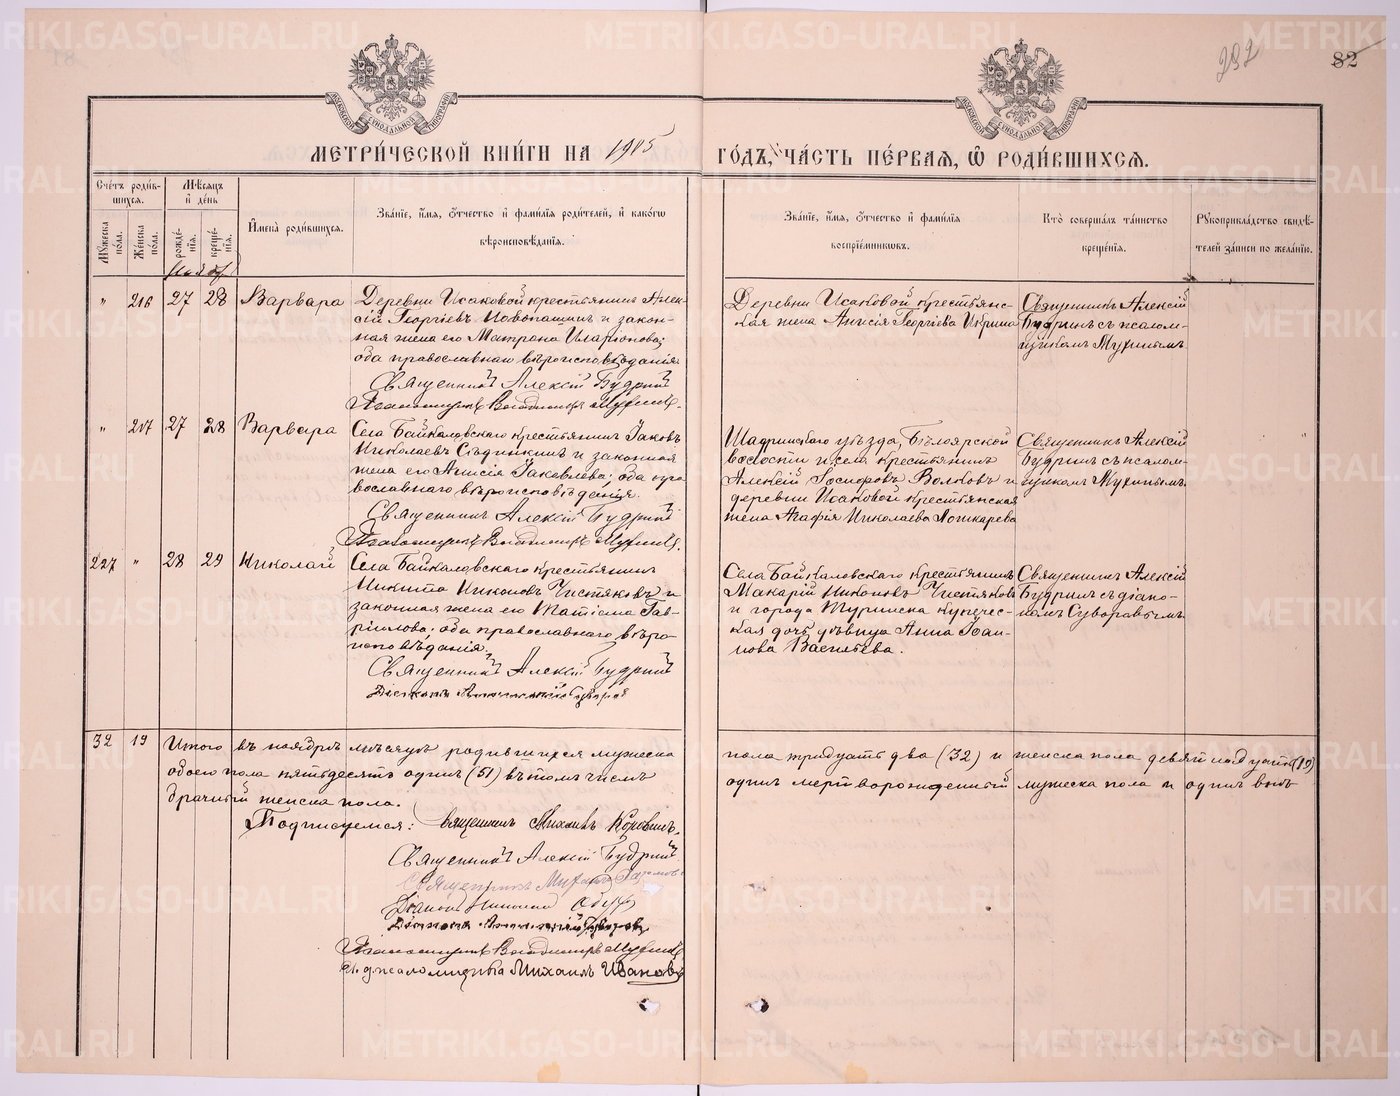 282
82
МЕТРИ́ЧЕСКОЙ КНИ́ГИ НА 1905 ГО́ДЪ, ЧА́СТЬ ПЕ́РВАѦ, Ѽ РОДИ́ВШИХСѦ.
Сче́тъ роди́вшихсѧ.
Мꙋ́жеска по́ла.
Же́нска по́ла.
Мѣ́сѧцъ и҆ де́нь
рожде́нїѧ.
креще́нїѧ.
И҆мена̀ роди́вшихсѧ.
Зва́нїе, и҆́мѧ, ѻ҆́тчество и҆ фами́лїѧ роди́телей, и҆ како́гѡ
вѣроисповѣ́данїѧ.
Зва́нїе, и҆́мѧ, ѻ҆́тчество и҆ фами́лїѧ
воспрїе́мникѡвъ.
Кто̀ соверша́лъ та́инство
креще́нїѧ.
Рꙋкоприкла́дство свидѣ́-
телей за́писи по жела́нїю.
Ноябрь
" 216 27 28 Варвара
Деревни Исаковой крестьянинъ Алек-
сій Георгіевъ Новопашинъ и закон-
ная жена его Матрона Иларіонова;
оба православнаго вѣроисповѣданія.
Священникъ Алексій Будринъ
Псаломщикъ Владимиръ Мухинъ.
Деревни Исаковой крестьянс-
кая жена Анисія Георгіева Икрина
Священникъ Алексій
Будринъ съ псалом-
щикомъ Мухинымъ.
" 217 27 28 Варвара
Села Байкаловскаго крестьянинъ Іаковъ
Николаевъ и законная
жена его Анисія Іаковлева; оба пра-
вославнаго вѣроисповѣданія.
Священникъ Алексій Будринъ
Псаломщикъ Владимиръ Мухинъ.
Шадринскаго уѣзда, Бѣлоярской
волости и села крестьянинъ
Алексій Іосифовъ Волковъ и
деревни Исаковой крестьянская
жена Агафія Николаева Лошкарева
Священникъ Алексій
Будринъ съ псалом-
щикомъ Мухинымъ.
227 " 28 29 Николай
Села Байкаловскаго крестьянинъ
Никита Никоновъ Чистяковъ и
законная жена его Татіана Гав-
ріилова; оба православнаго вѣро-
исповѣданія.
Священникъ Алексій Будринъ
Діаконъ Суворовъ
Села Байкаловскаго крестьянинъ
Макарій Никоновъ Чистяковъ
и города Туринска купечес-
кая дочь дѣвица Анна Іоан-
нова Васильева.
Священникъ Алексій
Будринъ съ діако-
номъ Суворовымъ.
32 19 Итого въ ноябрѣ мѣсяцѣ родившихся мужеска пола тридцать два (32) и женска пола девятнадцать (19)
обоего пола пятьдесятъ одинъ (51) въ томъ числѣ одинъ мертворожденный мужеска пола и одинъ внѣ-
брачный женска пола.
Подписуемся: Священникъ Михаилъ Коровинъ.
Священникъ Алексій Будринъ
Священникъ
Діаконъ Николай
Діаконъ Суворовъ
Псаломщикъ Владимиръ Мухинъ
и. д. псаломщика Михаилъ Ивановъ
METRIKI.GASO-URAL.RU